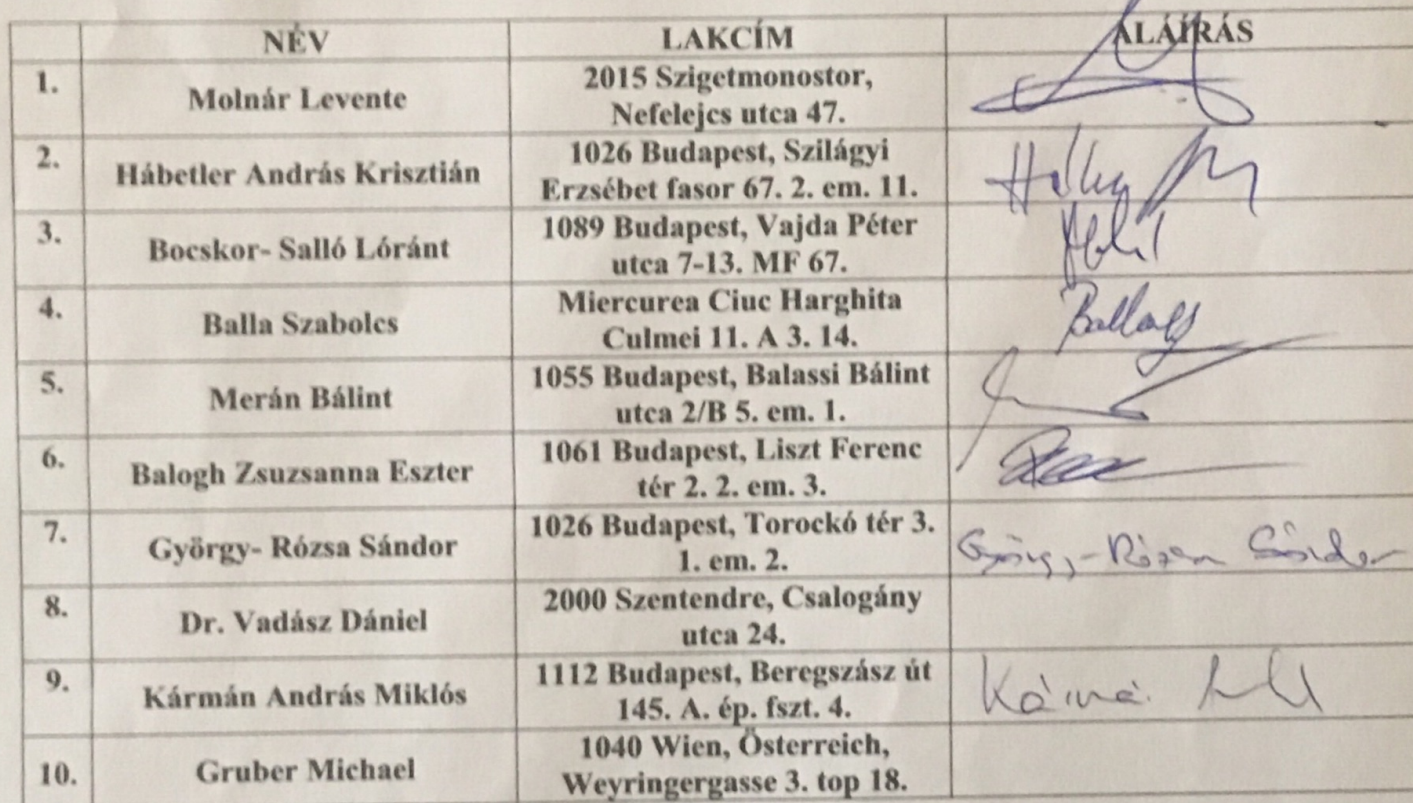 NÉV LAKCÍM ALÁÍRÁS
1. Molnár Levente 2015 Szigetmonostor,
Nefelejcs utca 47.
2. Hábetler András Krisztián 1026 Budapest, Szilágyi
Erzsébet fasor 67. 2. em. 11.
3. Bocskor- Salló Lóránt 1089 Budapest, Vajda Péter
utca 7-13. MF 67.
4. Balla Szabolcs Miercurea Ciuc Harghita
Culmei 11. A 3. 14.
5. Merán Bálint 1055 Budapest, Balassi Bálint
utca 2/B 5. em. 1.
6. Balogh Zsuzsanna Eszter 1061 Budapest, Liszt Ferenc
tér 2. 2. em. 3.
7. György- Rózsa Sándor 1026 Budapest, Torockó tér 3.
1. em. 2. György-Rózsa Sándor
8. Dr. Vadász Dániel 2000 Szentendre, Csalogány
utca 24.
9. Kármán András Miklós 1112 Budapest, Beregszász út
145. A. ép. fszt. 4.
10. Gruber Michael 1040 Wien, Österreich,
Weyringergasse 3. top 18.